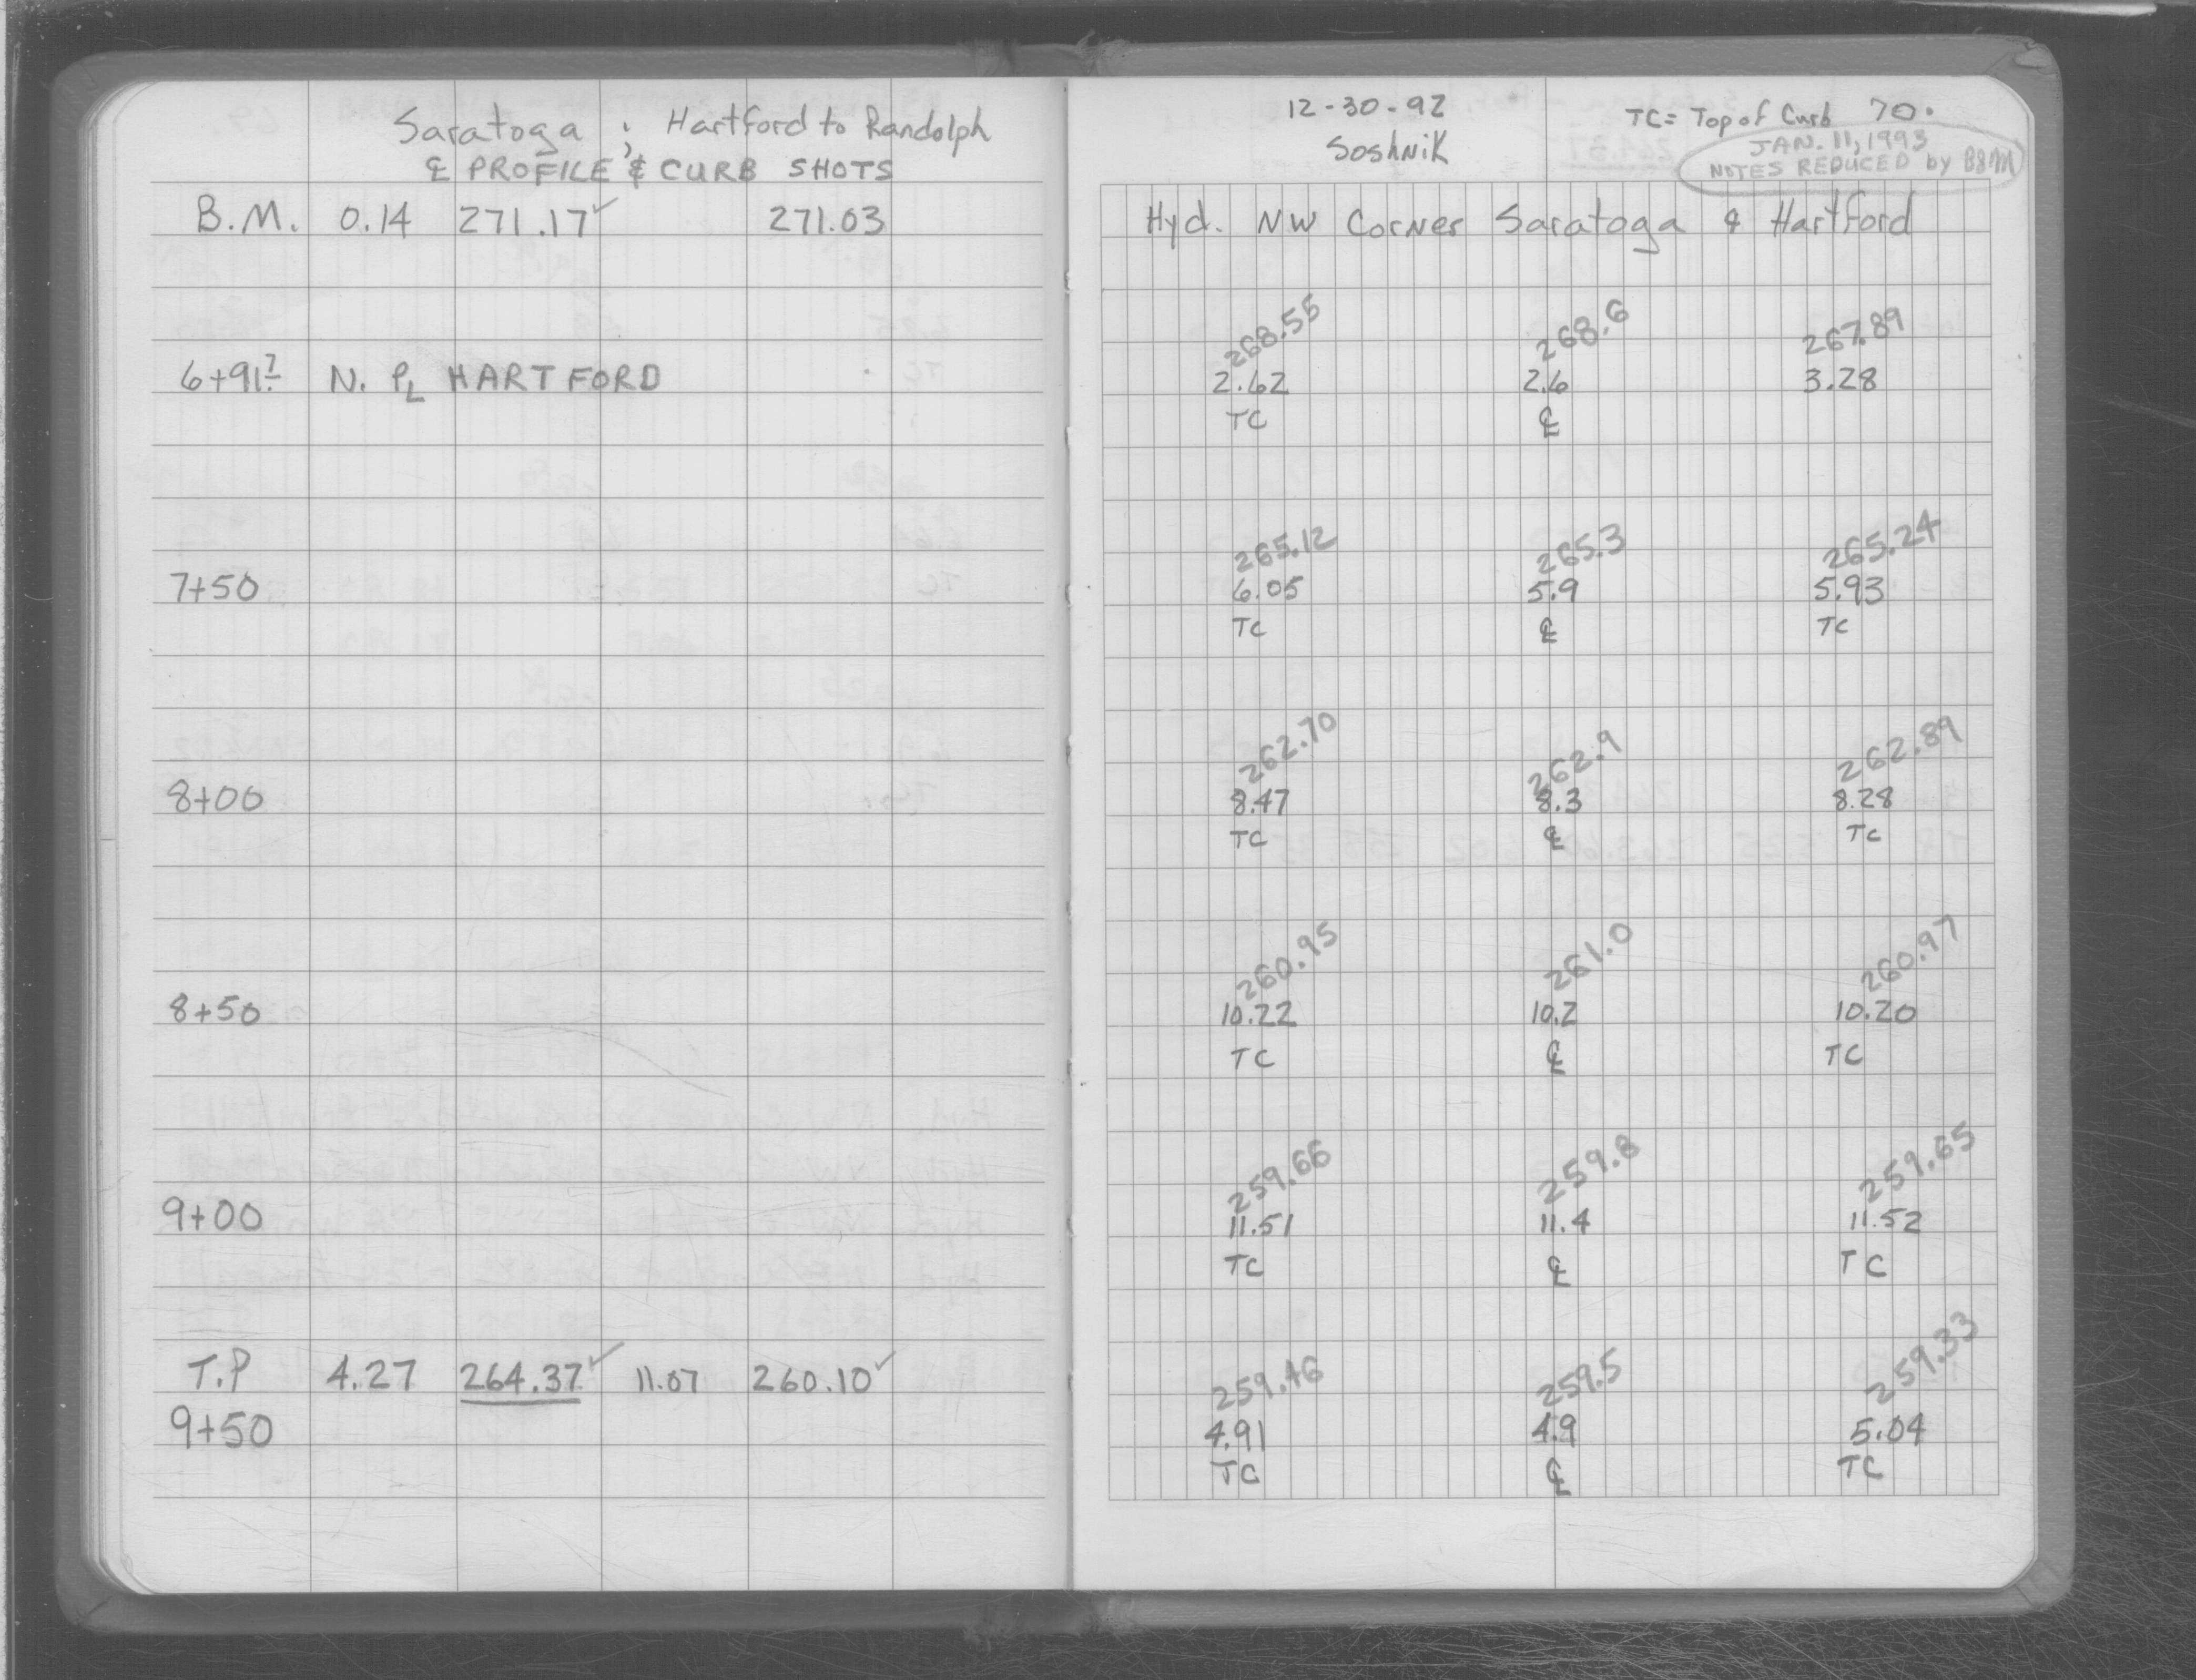 Saratoga ; Hartford to Randolph
℄ PROFILE & CURB SHOTS
B.M. 0.14 271.17✓ 271.03
6+91? N. PL HARTFORD
7+50
8+00
8+50
9+00
T.P 4.27 264.37✓ 11.07 260.10✓
9+50
12-30-92 TC= Top of Curb 70.
Soshnik
JAN. 11, 1993
NOTES REDUCED by BBM
Hyd. NW Corner Saratoga & Hartford
268.55 268.6 267.89
2.62 2.6 3.28
TC ℄
265.12 265.3 265.24
6.05 5.9 5.93
TC ℄ TC
262.70 262.9 262.89
8.47 8.3 8.28
TC ℄ TC
260.95 261.0 260.97
10.22 10.2 10.20
TC ℄ TC
259.66 259.8 259.65
11.51 11.4 11.52
TC ℄ TC
259.46 259.5 259.33
4.91 4.9 5.04
TC ℄ TC